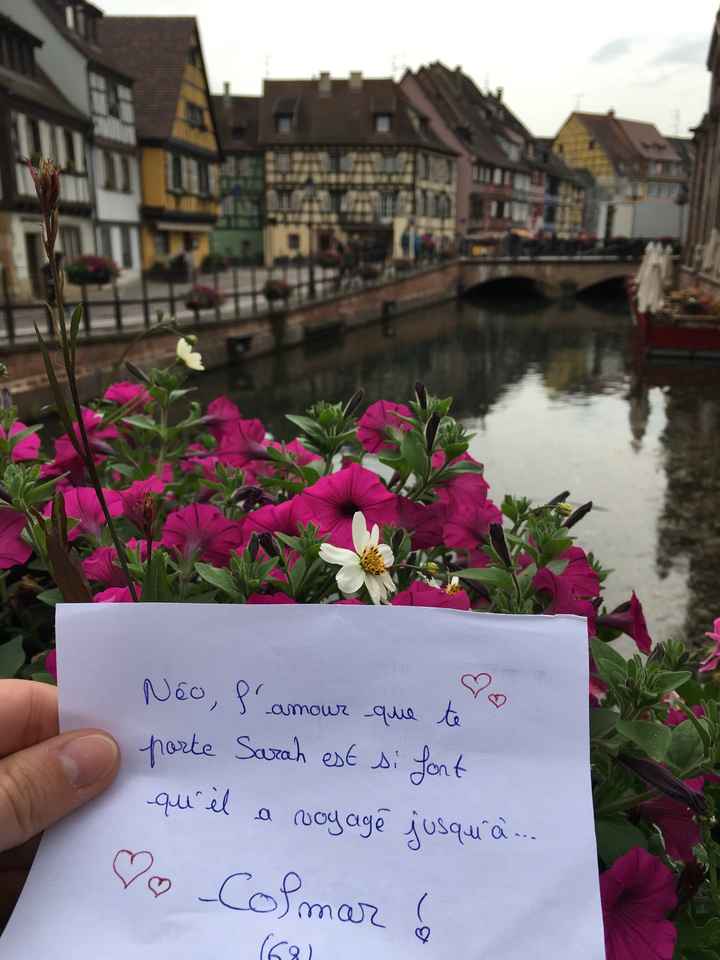 Néo, l'amour que te
porte Sarah est si fort
qu'il a voyagé jusqu'à...
Colmar !
(68)